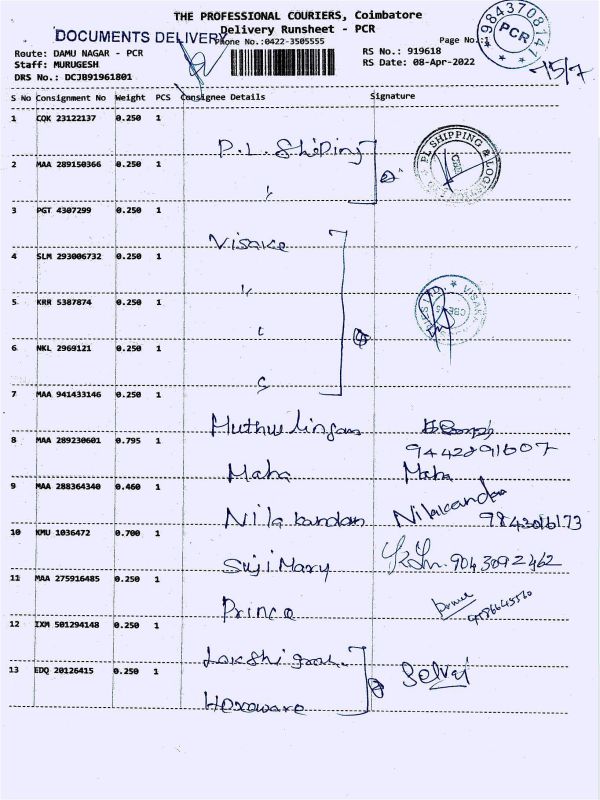 THE PROFESSIONAL COURIERS, Coimbatore
DOCUMENTS DELIVERY
Delivery Runsheet - PCR
Phone No.:0422-3505555
Page No.:1
9843708141
PCR
Route: DAMU NAGAR - PCR
RS No.: 919618
Staff: MURUGESH
RS Date: 08-Apr-2022
DRS No.: DCJB91961801
15/7
S No Consignment No Weight PCS Consignee Details Signature
1 CQK 23122137 0.250 1
P.L. Shiping
PL SHIPPING &
2 MAA 289150366 0.250 1
3 PGT 4307299 0.250 1
Visaka
4 SLM 293006732 0.250 1
VISAKA
5 KRR 5387874 0.250 1
CBE
6 NKL 2969121 0.250 1
7 MAA 941433146 0.250 1
Muthulingam
9442891607
8 MAA 289230601 0.795 1
Maha Maha
9 MAA 288364340 0.460 1
Nilakandan Nilakandan
9843016173
10 KMU 1036472 0.700 1
Suji Mary 9043092462
11 MAA 275916485 0.250 1
Prince
12 IXM 501294148 0.250 1
13 EDQ 20126415 0.250 1
Selvi
Hexaware